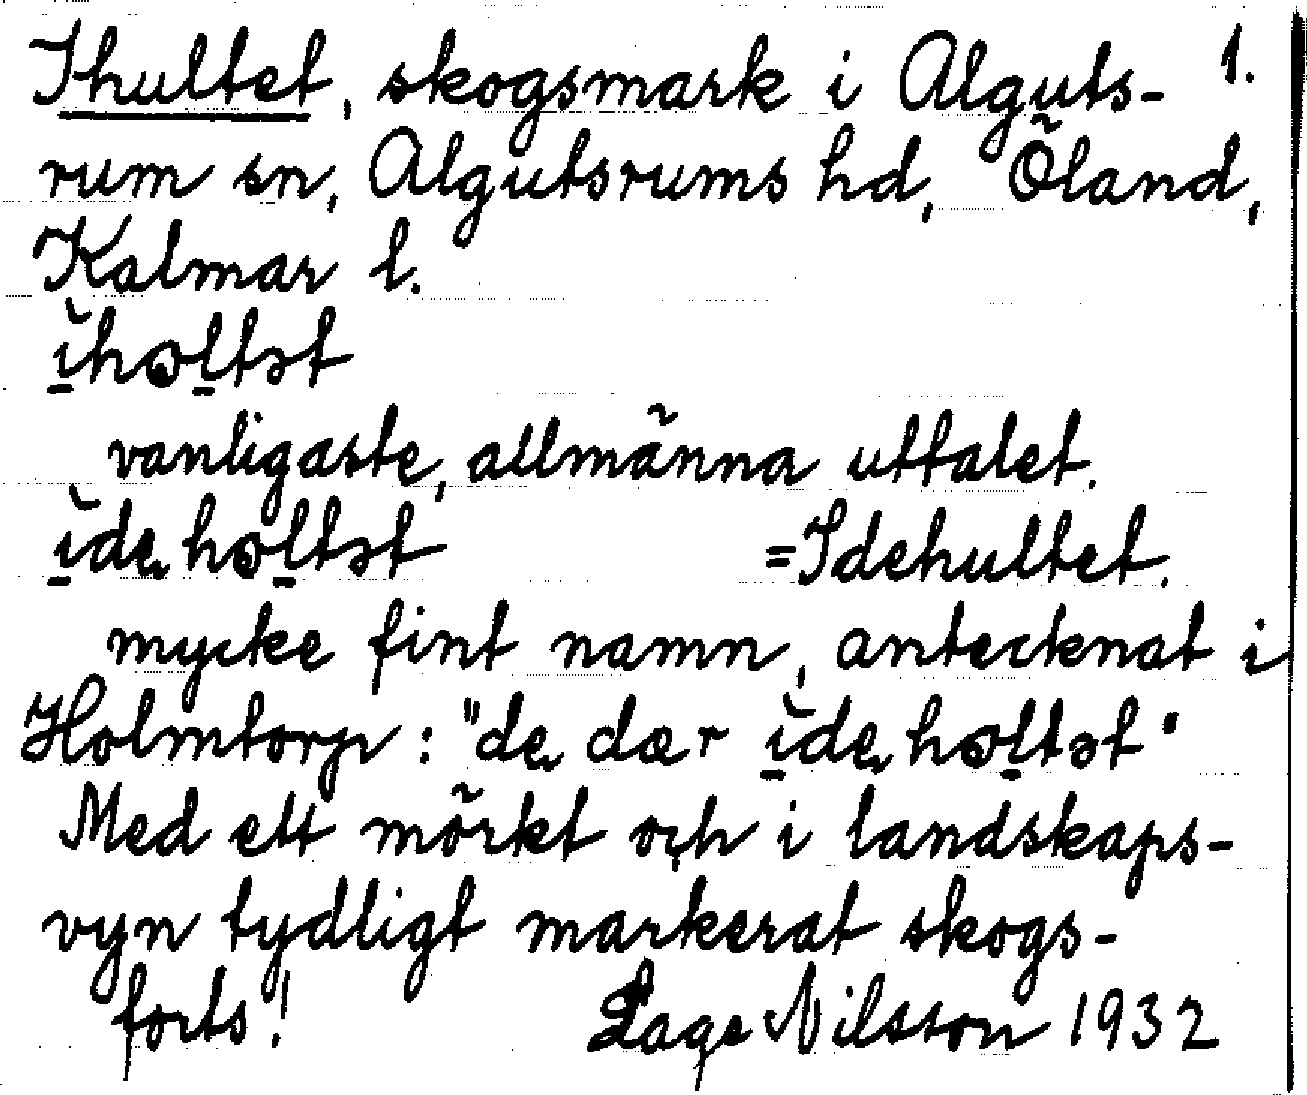 Ihultet, skogsmark i Alguts- 1.
rum sn, Algutsrums hd, Öland,
Kalmar l.
ìhɷltət
vanligaste, allmänna uttalet.
ìdehɷltət =Idehultet.
mycke fint namn, antecknat i
Holmtorp: "de dær ìdehɷltət"
Med ett mörkt och i landskaps-
vyn tydligt markerat skogs-
forts! Lage Nilsson 1932